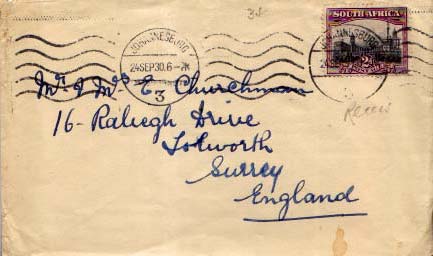 3d
SOUTH AFRICA
JOHANNESBURG
24 SEP 30. 6 - PM
3
JOHANNESBURG
2d
Mr. & Mrs. E. Churchman
16 - Raleigh Drive
Tolworth
Surrey
England